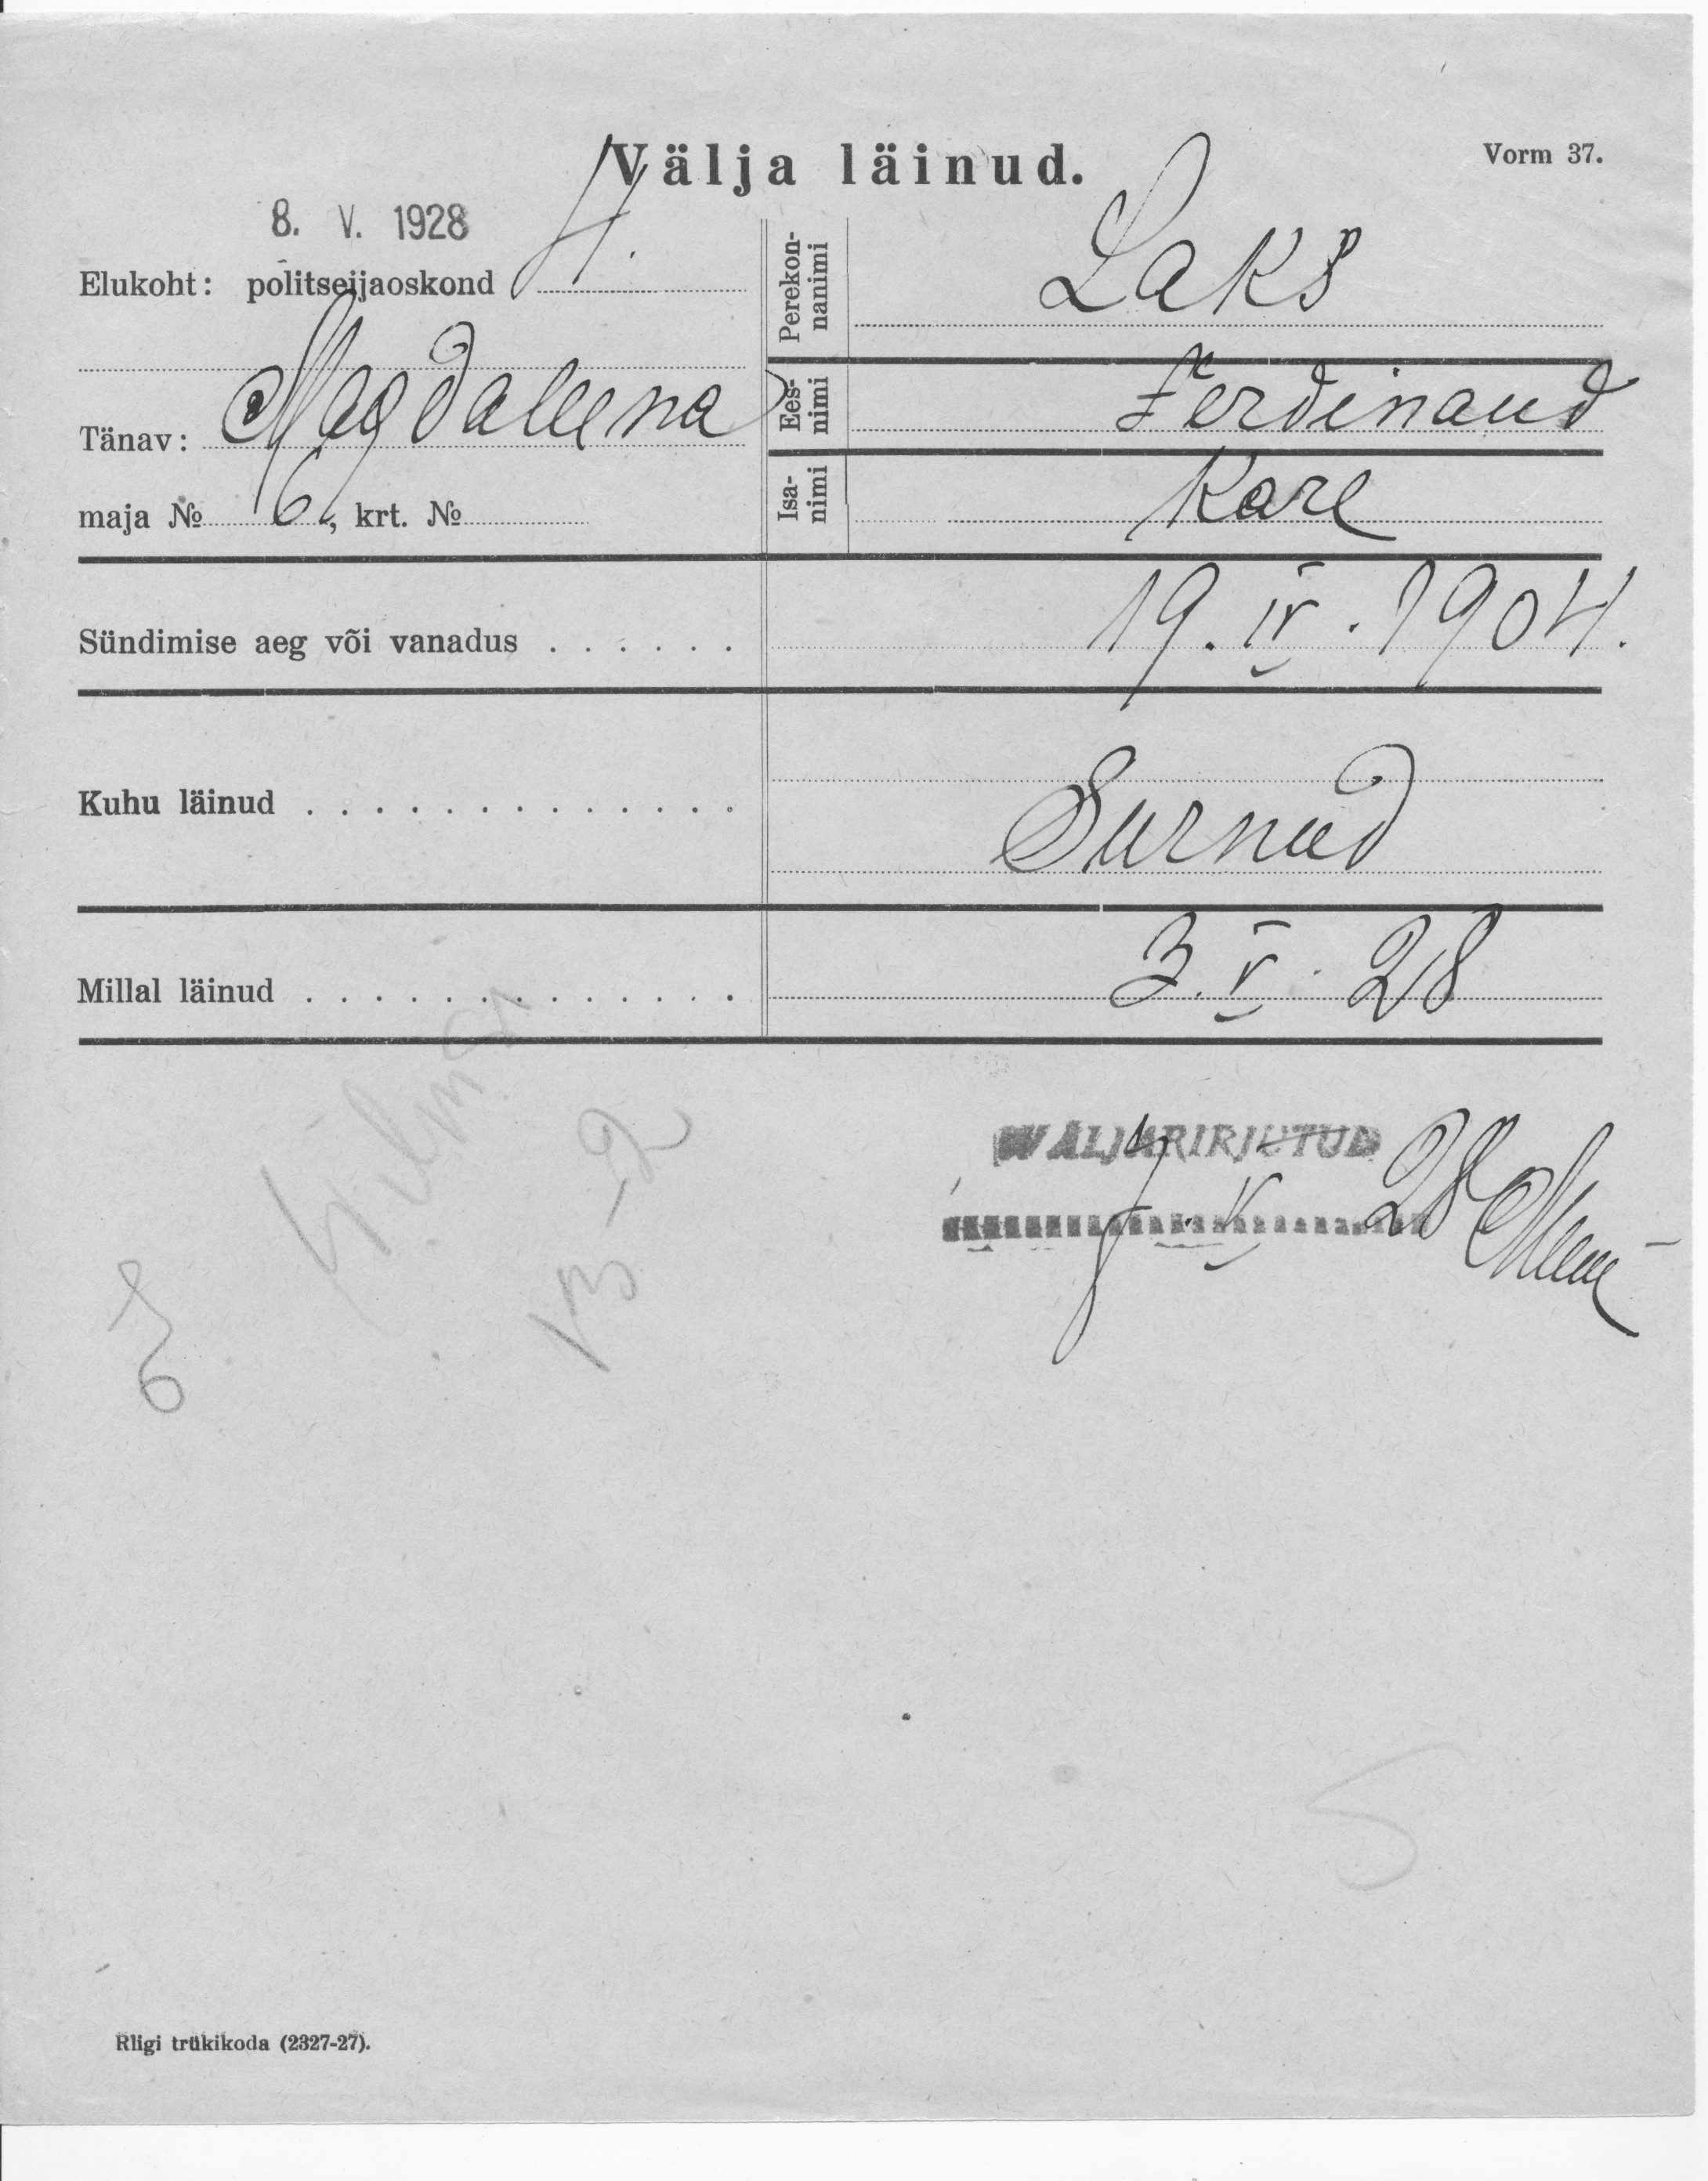 Välja läinud.
Vorm 37.
8. V. 1928
Elukoht: politseijaoskond 4.
Tänav: Magdaleena
maja № 6, krt. №
Perekon-
nanimi
Laks
Ees-
nimi
Ferdinand
Isa-
nimi
Karl
Sündimise aeg või vanadus . . . . . . 19. IV. 1904.
Kuhu läinud . . . . . . . . . . . . . Surnud
Millal läinud . . . . . . . . . . . . . 3. V. 28
WÄLJAKIRJUTUD
V 28
5
Riigi trükikoda (2327-27).